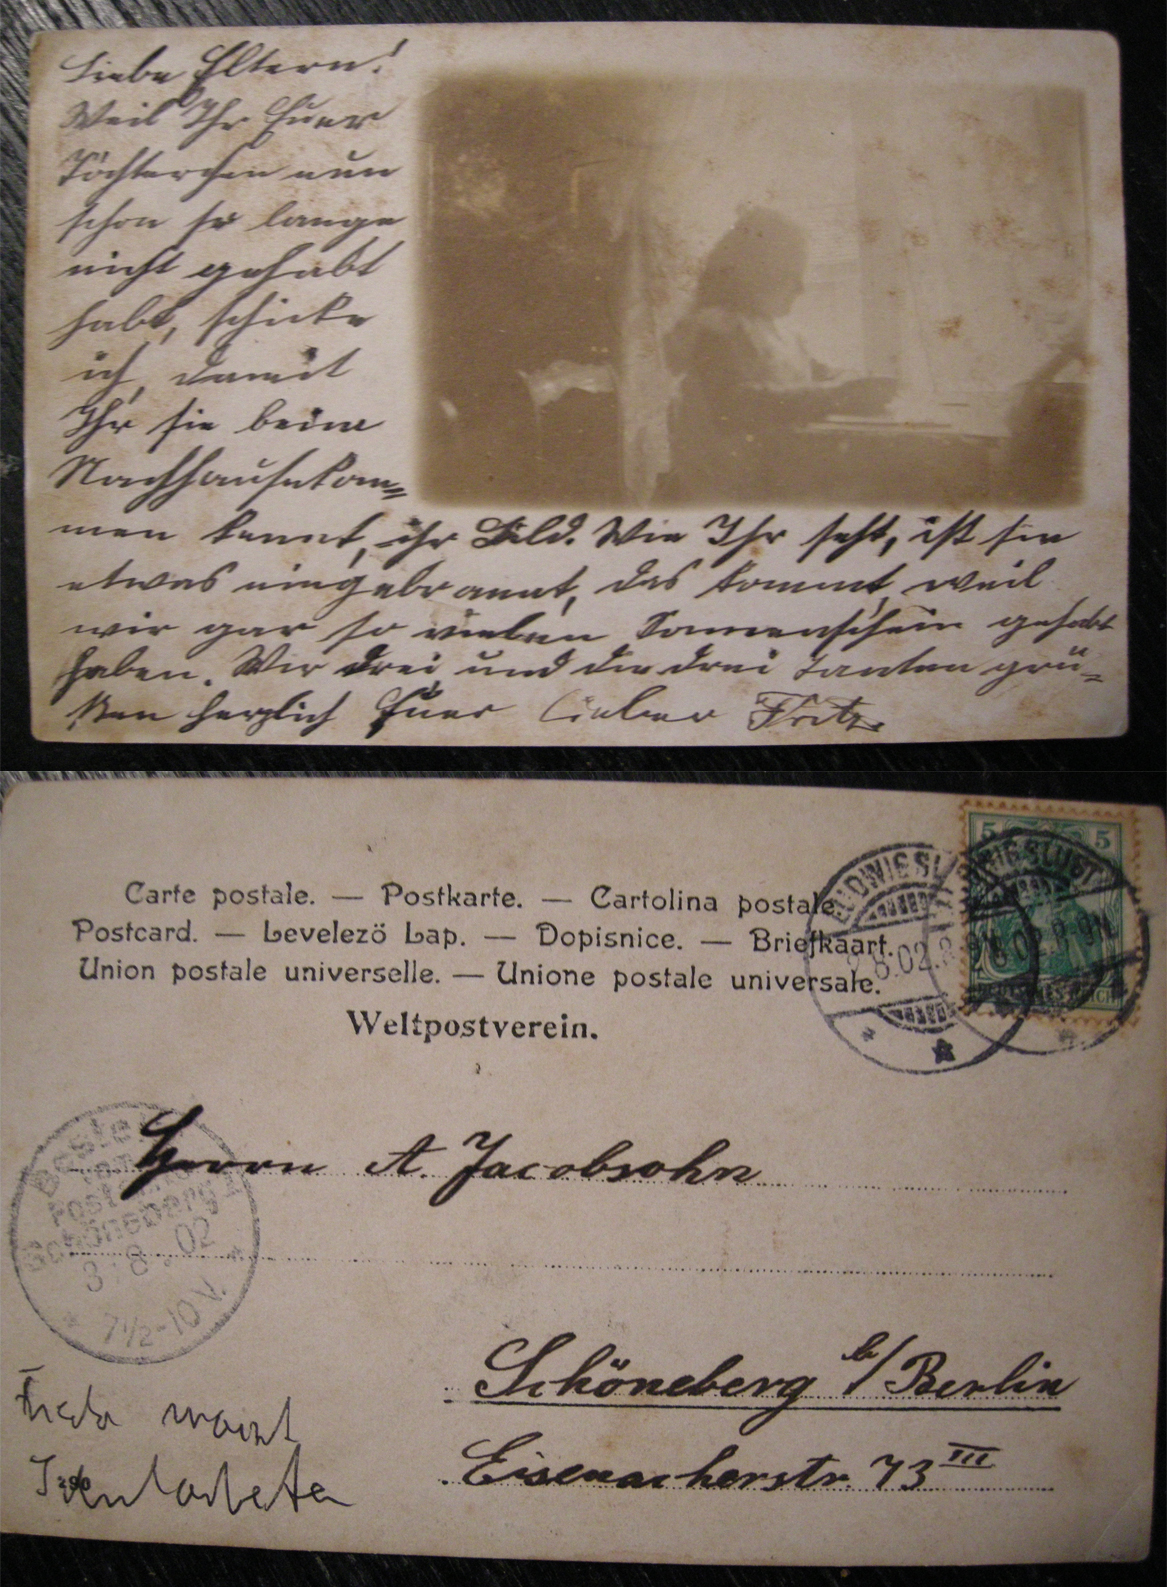 Liebe Eltern!
Weil Ihr Euer
Töchterchen nun
schon so lange
nicht gehabt
habt, schicke
ich, damit
Ihr sie beim
Nachhausekom=
men kennt, ihr Bild. Wie Ihr seht, ist sie
etwas eingebrannt, das kommt, weil
wir gar so vielen Sonnenschein gehabt
haben. Wir drei und die drei Tanten grü=
ßen herzlich Euer lieber Fritz.
Carte postale. — Postkarte. — Cartolina postale.
Postcard. — Levelezö Lap. — Dopisnice. — Briefkaart.
Union postale universelle. — Unione postale universale.
Weltpostverein.
5 5
DEUTSCHES REICH
LUDWIGSLUST
8.02.8-9N
LUDWIGSLUST
8.02.8-9N
Bestellt
vom
Postamte
Schöneberg
3.8.02
7½-10V.
Herrn A. Jacobsohn
Schöneberg b/Berlin
Eisenacherstr. 73 III